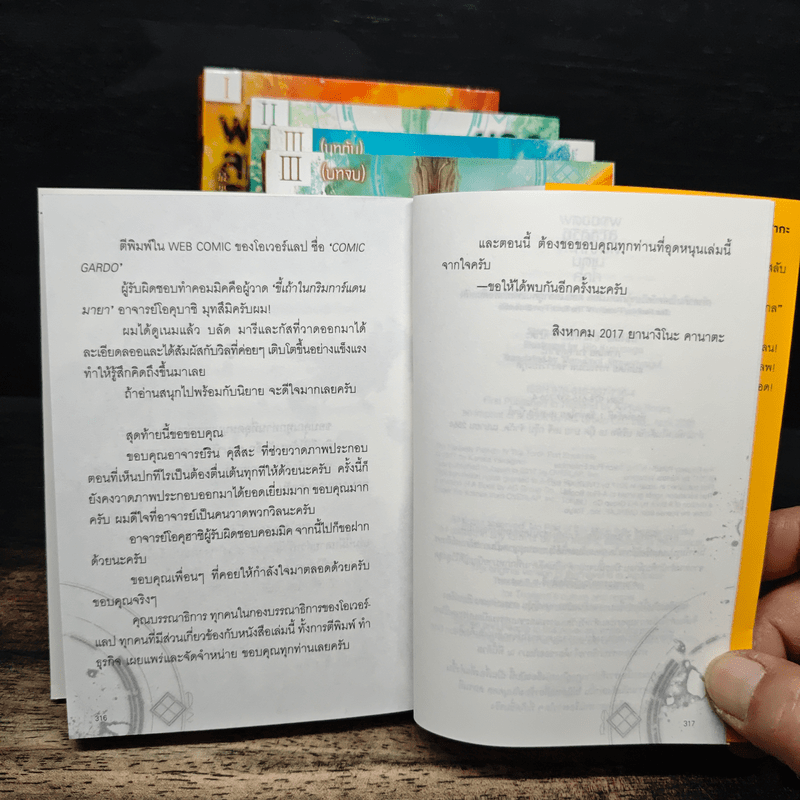 I
II
III
(บทต้น)
III
(บทจบ)
ตีพิมพ์ใน WEB COMIC ของโอเวอร์แลป ชื่อ 'COMIC
GARDO'
ผู้รับผิดชอบทำคอมมิคคือผู้วาด 'ขี้เถ้าในกริมการ์แดน
มายา' อาจารย์โอคุบาชิ มุทสึมิครับผม!
ผมได้ดูเนมแล้ว บลัด มารีและกัสที่วาดออกมาได้
ละเอียดลออและได้สัมผัสกับวิลที่ค่อยๆ เติบโตขึ้นอย่างแข็งแรง
ทำให้รู้สึกคิดถึงขึ้นมาเลย
ถ้าอ่านสนุกไปพร้อมกับนิยาย จะดีใจมากเลยครับ
สุดท้ายนี้ขอขอบคุณ
ขอบคุณอาจารย์ริน คุสึสะ ที่ช่วยวาดภาพประกอบ
ตอนที่เห็นปกทีไรเป็นต้องตื่นเต้นทุกทีให้ด้วยนะครับ ครั้งนี้ก็
ยังคงวาดภาพประกอบออกมาได้ยอดเยี่ยมมาก ขอบคุณมาก
ครับ ผมดีใจที่อาจารย์เป็นคนวาดพวกวิลนะครับ
อาจารย์โอคุฮาชิผู้รับผิดชอบคอมมิค จากนี้ไปก็ขอฝาก
ด้วยนะครับ
ขอบคุณเพื่อนๆ ที่คอยให้กำลังใจมาตลอดด้วยครับ
ขอบคุณจริงๆ
คุณบรรณาธิการ ทุกคนในกองบรรณาธิการของโอเวอร์-
แลป ทุกคนที่มีส่วนเกี่ยวข้องกับหนังสือเล่มนี้ ทั้งการตีพิมพ์ ทำ
ธุรกิจ เผยแพร่และจัดจำหน่าย ขอบคุณทุกท่านเลยครับ
316
และตอนนี้ ต้องขอขอบคุณทุกท่านที่อุดหนุนเล่มนี้
จากใจครับ
—ขอให้ได้พบกันอีกครั้งนะครับ
สิงหาคม 2017 ยานางิโนะ คานาตะ
317